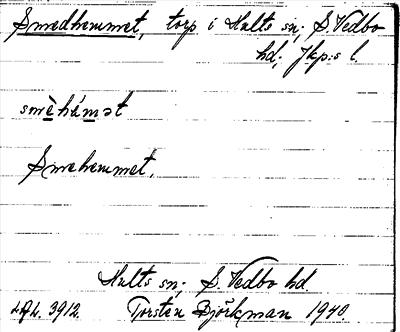 Smedhemmet, torp i Hults sn; S. Vedbo
hd; Jkp:s l.
smèhæ̀mət
Smehemmet.
Hults sn; S. Vedbo hd
Torsten Björkman 1940